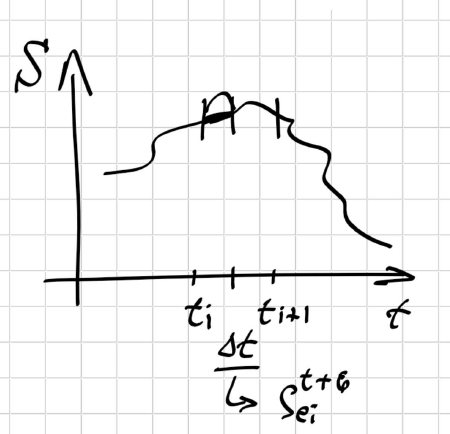 S
t_i t_{i+1} t
Δt
↳ S_{ei}^{t+6}